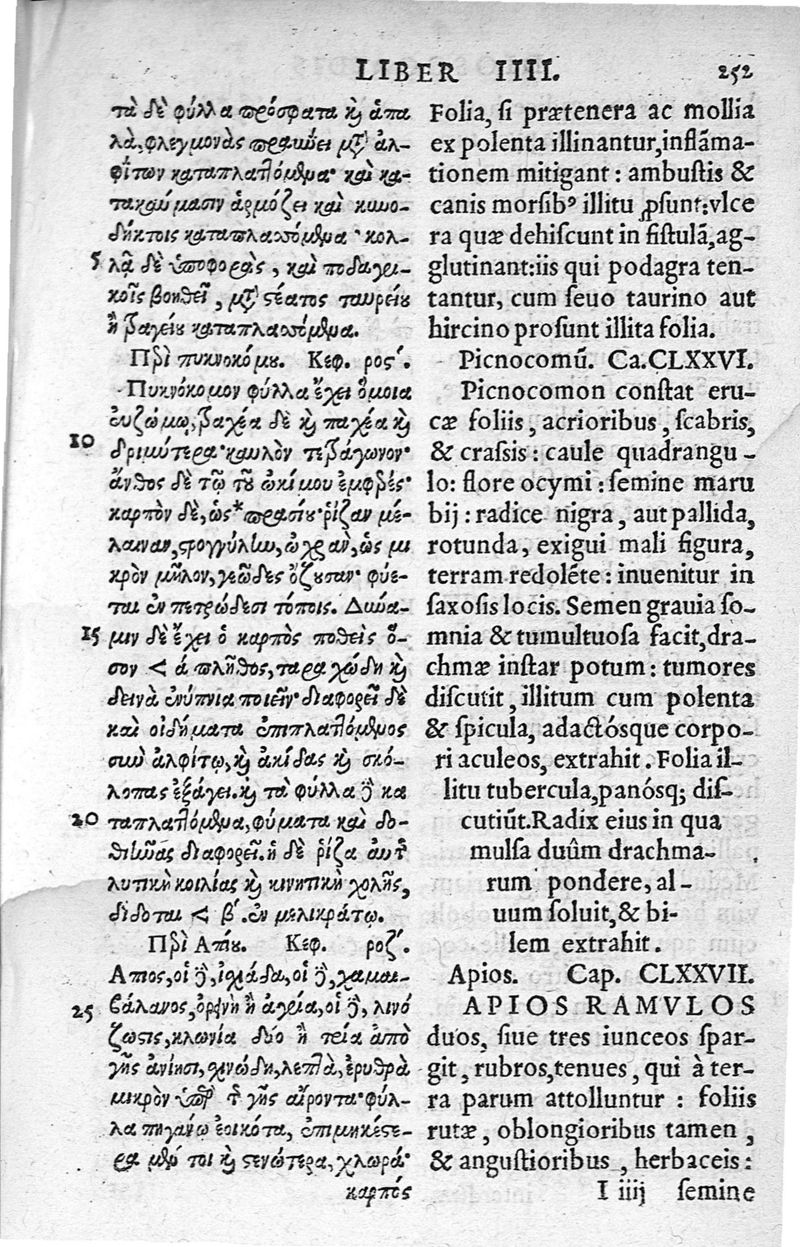 LIBER IIII. 252
τὰ δὲ φύλλα πρόσφατα κὶ ἁπα
λὰ, φλεγμονὰς πραΰνει μτ̃ ἀλ-
φίτων καταπλαττόμενα· καὶ κα-
τακαύμασιν ἁρμόζει καὶ κυνο-
δήκτοις καταπλασσόμενα· κολ-
5 λᾷ δὲ ὑποφορὰς, καὶ ποδαγρι-
κοῖς βοηθεῖ, μτ̃ στέατος ταυρείου
ἢ τραγείου καταπλασσόμενα.
Περὶ πυκνοκόμου. Κεφ. ρος΄.
Πυκνόκομον φύλλα ἔχει ὅμοια
εὐζώμῳ, τραχέα δὲ κὶ παχέα κὶ
10 δριμύτερα· καυλὸν τετράγωνον·
ἄνθος δὲ τῷ τοῦ ὠκίμου ἐμφερές·
καρπὸν δὲ, ὡς* πρασίου· ῥίζαν μέ-
λαιναν, στρογγύλην, ὠχρὰν, ὡς μι
κρὸν μῆλον, γεῶδες ὄζουσαν· φύε-
ται ἐν πετρώδεσι τόποις. Δύνα-
15 μιν δὲ ἔχει ὁ καρπὸς ποθεὶς ὅ-
σον < ά πλῆθος, ταραχώδη κὶ
δεινὰ ἐνύπνια ποιεῖν· διαφορεῖ δὲ
καὶ οἰδήματα ἐπιπλαττόμενος
σὺν ἀλφίτῳ, κὶ ἀκίδας κὶ σκό-
λοπας ἐξάγει. κὶ τὰ φύλλα δὲ κα
20 ταπλαττόμενα, φύματα καὶ δο-
θιῆνας διαφορεῖ. ἡ δὲ ῥίζα αὐτῆς
λυτικὴ κοιλίας κὶ κινητικὴ χολῆς,
δίδοται < β΄. ἐν μελικράτῳ.
Περὶ Απίου. Κεφ. ροζ΄.
Απιος, οἱ δὲ, ἰσχάδα, οἱ δὲ, χαμαι-
25 βάλανος, ὀρεινὴ ἢ ἀγρία, οἱ δὲ, λινό
ζωστις, κλωνία δύο ἢ τρία ἀπὸ
γῆς ἀνίησι, σχινώδη, λεπτὰ, ἐρυθρὰ
μικρὸν ὑπὲρ τῆς γῆς αἴροντα· φύλ-
λα πηγάνῳ ἐοικότα, ἐπιμηκέστε-
ρα μέν τοι κὶ στενώτερα, χλωρά·
καρπός
Folia, si prætenera ac mollia
ex polenta illinantur, inflãma-
tionem mitigant: ambustis &
canis morsibꝰ illitu ꝓsunt: vlce
ra quæ dehiscunt in fistulã, ag-
glutinant: iis qui podagra ten-
tantur, cum seuo taurino aut
hircino prosunt illita folia.
Picnocomũ. Ca. CLXXVI.
Picnocomon constat eru-
cæ foliis, acrioribus, scabris,
& crassis: caule quadrangu-
lo: flore ocymi: semine maru
bij: radice nigra, aut pallida,
rotunda, exigui mali figura,
terram redolẽte: inuenitur in
saxosis locis. Semen grauia so-
mnia & tumultuosa facit, dra-
chmæ instar potum: tumores
discutit, illitum cum polenta
& spicula, adactósque corpo-
ri aculeos, extrahit. Folia il-
litu tubercula, panósq; dis-
cutiũt. Radix eius in qua
mulsa duûm drachma-
rum pondere, al-
uum soluit, & bi-
lem extrahit.
Apios. Cap. CLXXVII.
APIOS RAMVLOS
duos, siue tres iunceos spar-
git, rubros, tenues, qui à ter-
ra parum attolluntur: foliis
rutæ, oblongioribus tamen,
& angustioribus, herbaceis:
I iiij semine